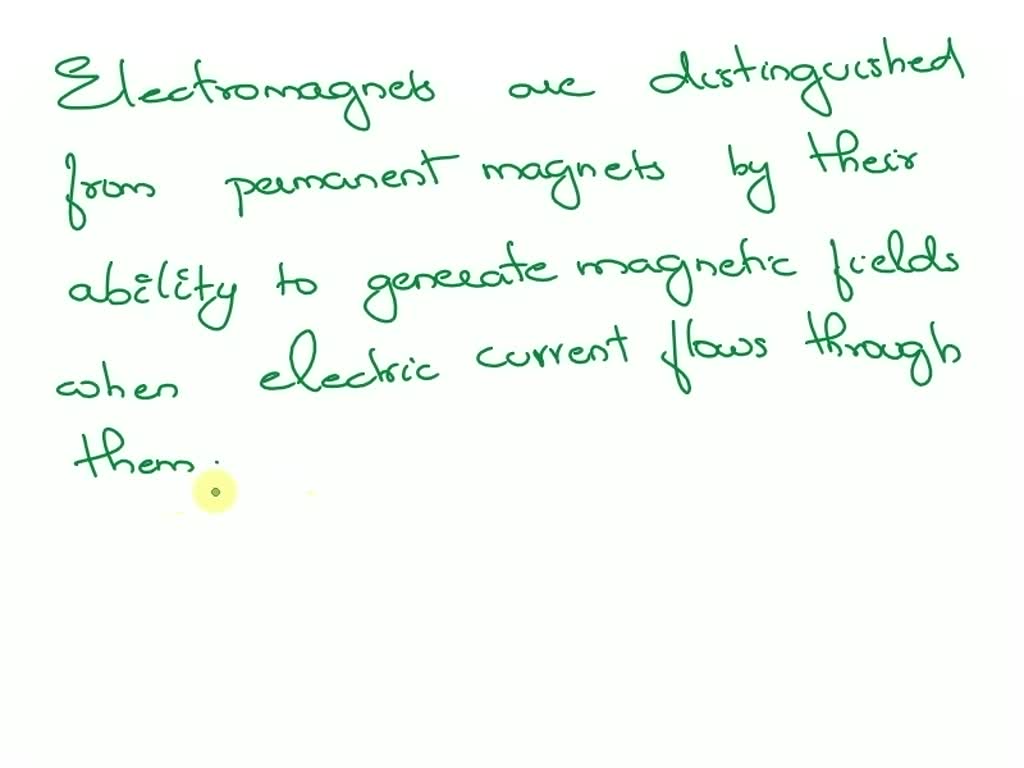 Electromagnets are distinguished
from permanent magnets by their
ability to generate magnetic fields
when electric current flows through
them.